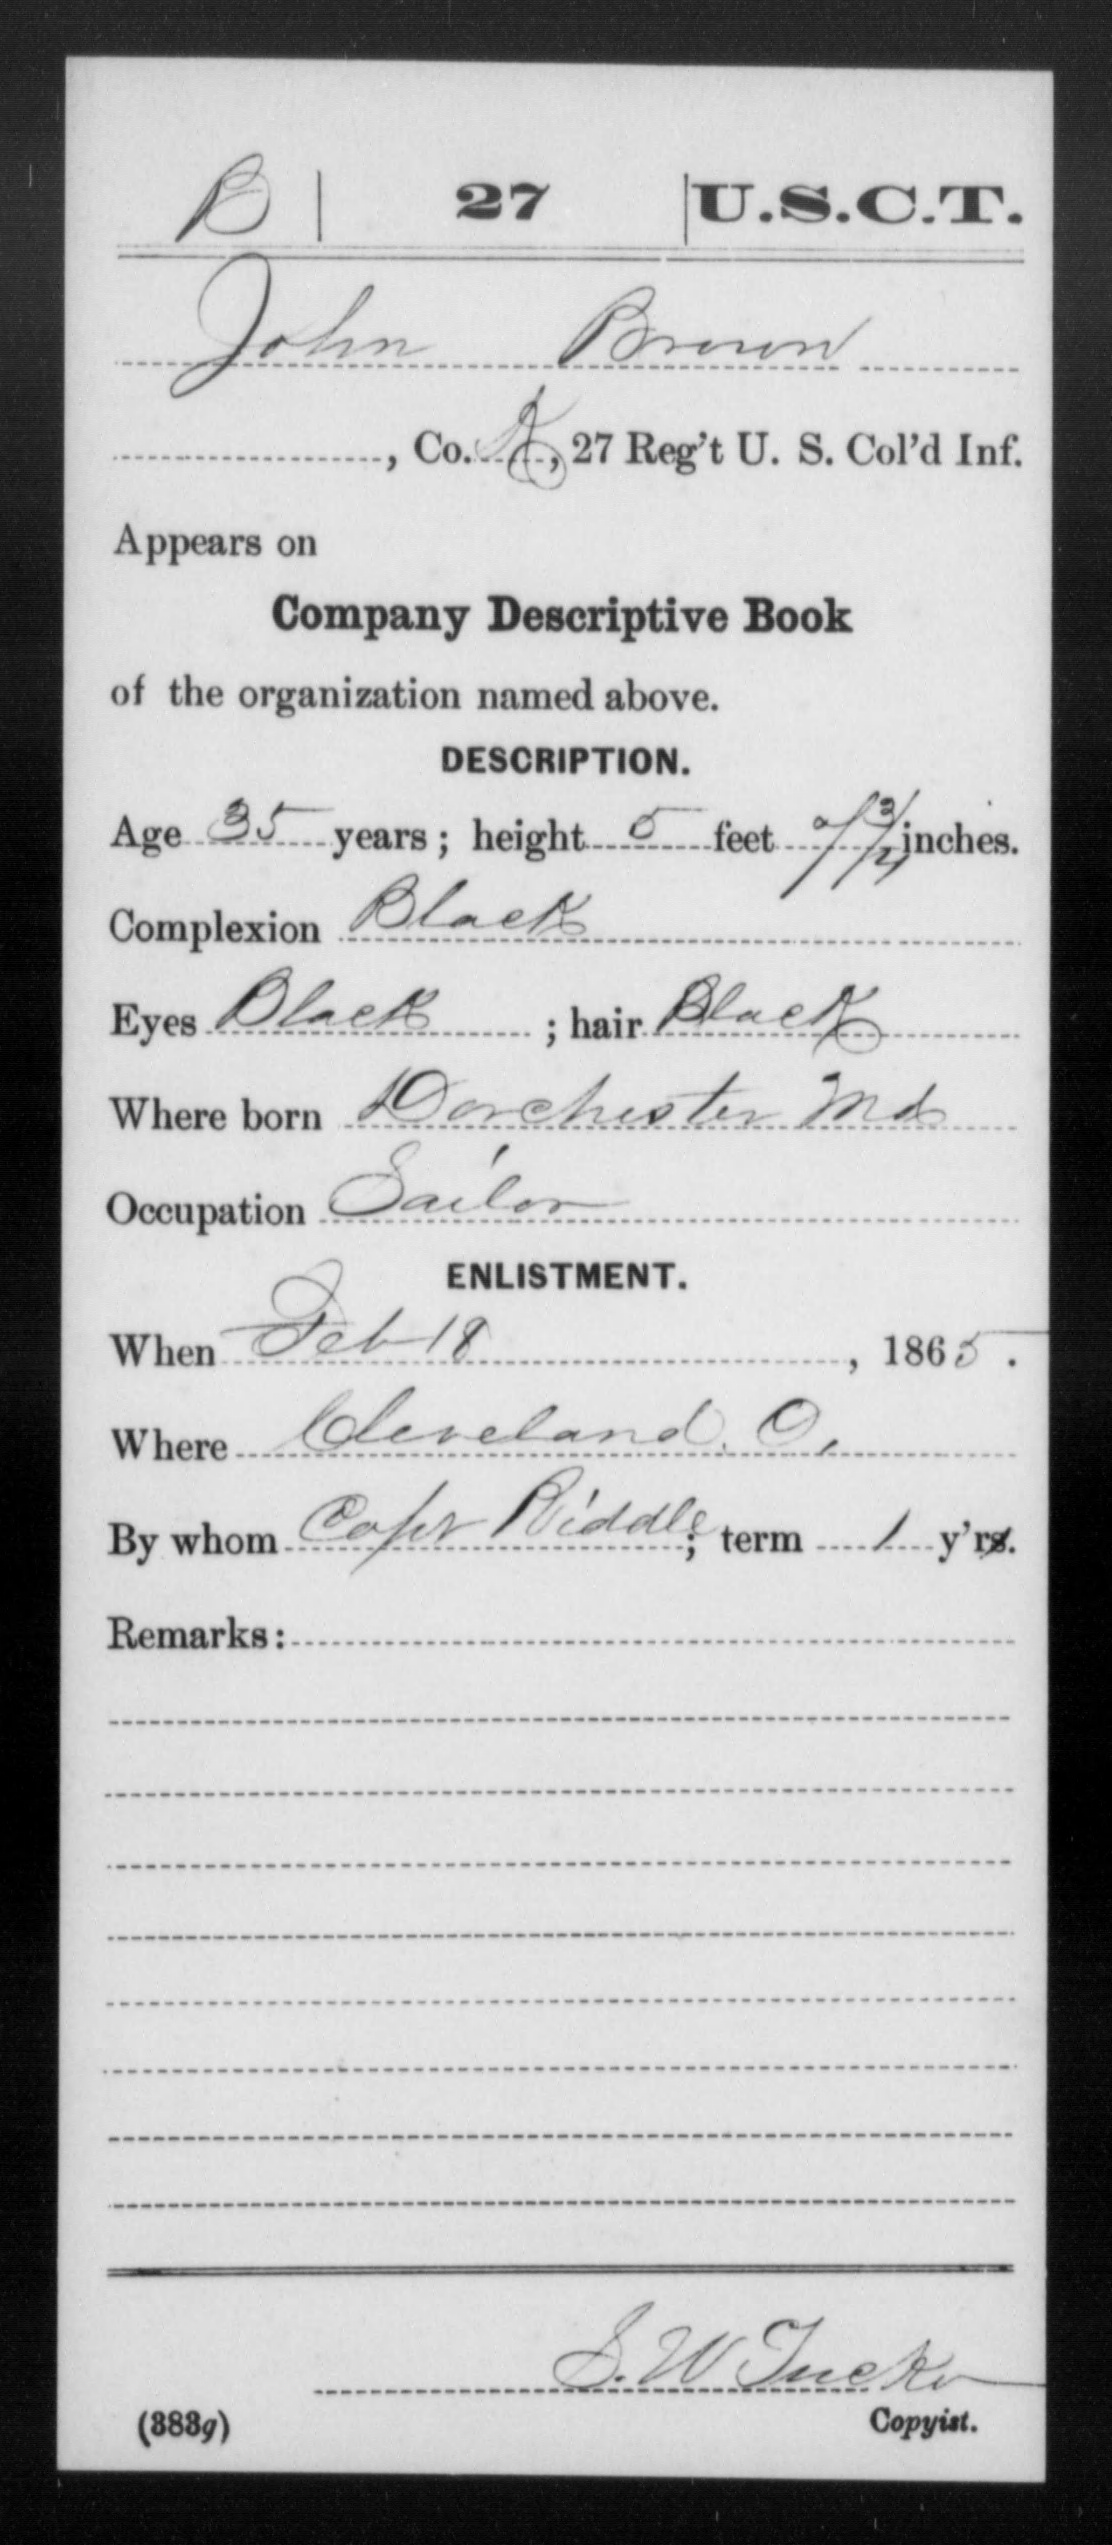 B | 27 | U.S.C.T.
John Brown
, Co. K, 27 Reg't U. S. Col'd Inf.
Appears on
Company Descriptive Book
of the organization named above.
DESCRIPTION.
Age 35 years; height 5 feet 7 3/4 inches.
Complexion Black
Eyes Black ; hair Black
Where born Dorchester Md
Occupation Sailor
ENLISTMENT.
When Feb 18, 1865.
Where Cleveland. O.
By whom Capt Riddle; term 1 y'rs.
Remarks:
S. W. Tucker
(383g) Copyist.